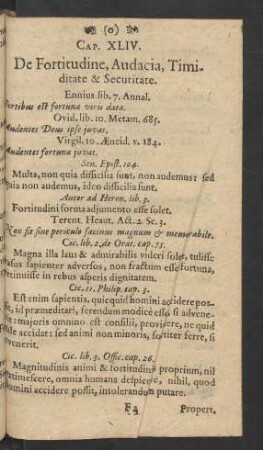 (o)
CAP. XLIV.
De Fortitudine, Audacia, Timi-
ditate & Securitate.
Ennius lib. 7. Annal.
ortibus est fortuna viris data.
Ovid. lib. 10. Metam. 685.
udentes Deus ipse juvat.
Virgil. 10. Æneid. v. 184.
Audentes fortuna juvat.
Sen. Epist. 104.
Multa, non quia difficilia sunt, non audemus; sed
quia non audemus, ideo difficilia sunt.
Autor ad Heren. lib. 3.
Fortitudini forma adjumento esse solet.
Terent. Heaut. Act. 2. Sc. 3.
Non fit sine periculo facinus magnum & memorabile.
Cic. lib. 2. de Orat. cap. 75.
Magna illa laus & admirabilis videri solet, tulisse
casus sapienter adversos, non fractum esse fortuna,
retinuisse in rebus asperis dignitatem.
Cic. 11. Philip. cap. 3.
Est enim sapientis, quicquid homini accidere pos-
, id præmeditari, ferendum modicè esse, si advene-
: majoris omnino est consilii, providere, ne quid
le accidat: sed animi non minoris, fortiter ferre, si
evenerit.
Cic. lib. 3. Offic. cap. 26.
Magnitudinis animi & fortitudinis proprium, nil
extimescere, omnia humana despicere, nihil, quod
homini accidere possit, intolerandum putare.
Propert.